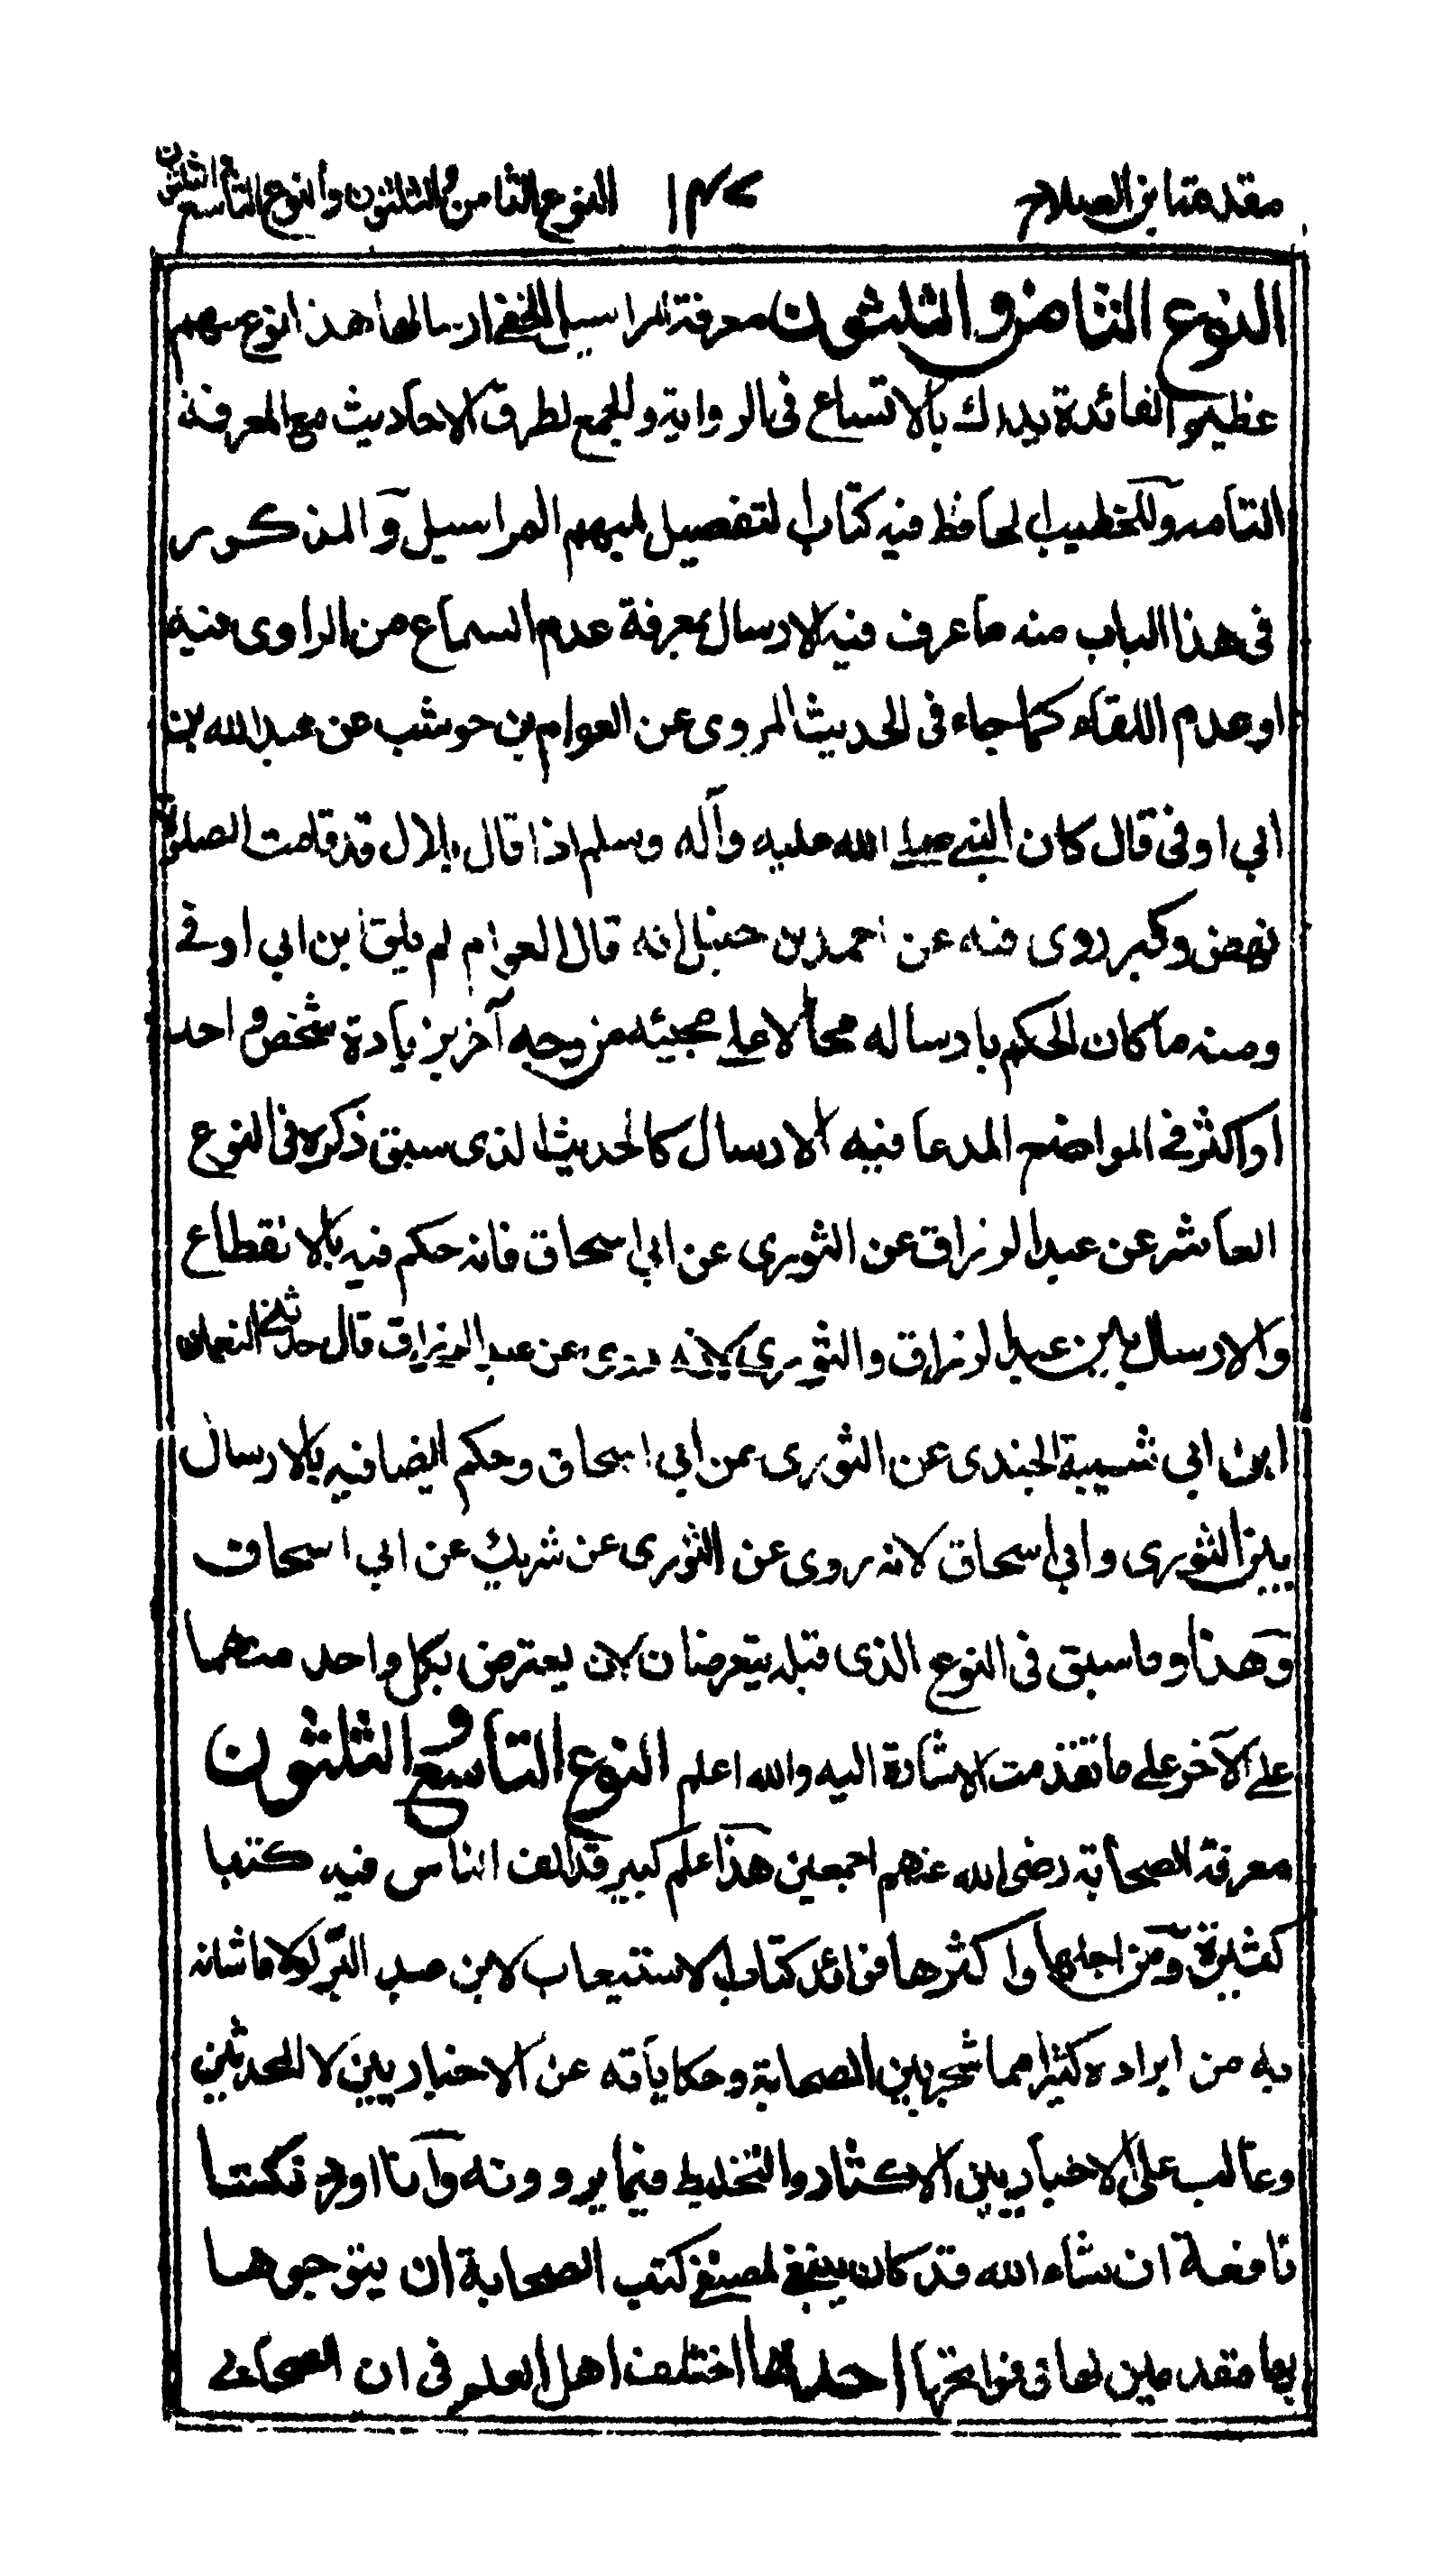 مقدمة ابن الصلاح ١٤٧ النوع الثامن والثلثون والنوع التاسع والثلثون
النوع الثامن والثلثون معرفة المراسيل الخفي ارسالها هذا نوع مهم
عظيم الفائدة يدرك بالاتساع في الرواية والجمع لطرق الاحاديث مع المعرفة
التامة وللخطيب الحافظ فيه كتاب لتفصيل لمبهم المراسيل والمذكور
في هذا الباب منه ما عرف فيه الارسال بمعرفة عدم السماع من الراوي فيه
او عدم اللقاء كما جاء في الحديث المروى عن العوام بن حوشب عن عبد الله بن
ابي اوفى قال كان النبي صلى الله عليه وآله وسلم اذا قال بلال قد قامت الصلوة
نهض وكبر روى فيه عن احمد بن حنبل انه قال العوام لم يلق ابن ابي اوفى
ومنه ما كان الحكم بارساله محالا على مجيئه من وجه آخر بزيادة شخص واحد
او اكثر في المواضع المدعا فيه الارسال كالحديث الذى سبق ذكره في النوع
العاشر عن عبد الرزاق عن الثورى عن ابي اسحاق فانه حكم فيه بالانقطاع
والارسال بين عبد الرزاق والثورى لانه روى عن عبد الرزاق قال حدثني النعمان
ابن ابي شيبة الجندى عن الثورى عن ابي اسحاق وحكم ايضا فيه بالارسال
بين الثورى وابي اسحاق لانه روى عن الثورى عن شريك عن ابي اسحاق
وهذا وما سبق في النوع الذى قبله يتعرضان لان يعترض بكل واحد منهما
على الآخر على ما تقدمت الاشارة اليه والله اعلم النوع التاسع والثلثون
معرفة الصحابة رضى الله عنهم اجمعين هذا علم كبير قد الف الناس فيه كتبا
كثيرة ومن اجلها واكثرها فوائد كتاب الاستيعاب لابن عبد البر لولا ما شانه
به من ايراده كثيرا مما شجر بين الصحابة وحكاياته عن الاخباريين لا المحدثين
وغالب على الاخباريين الاكثار والتخليط فيما يروونه وانا اورد نكتا
نافعة ان شاء الله قد كان ينبغي لمصنفي كتب الصحابة ان يتوجوها
بها مقدمين لها في فواتحها احدها اختلف اهل العلم في ان الصحابي